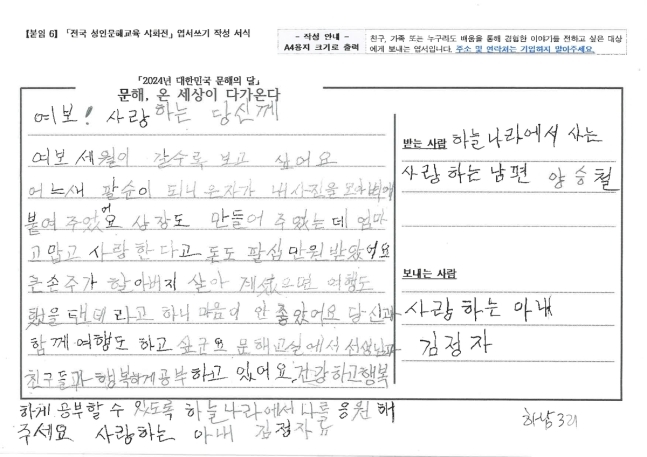 【붙임 6】 「전국 성인문해교육 시화전」 엽서쓰기 작성 서식
- 작성 안내 -
A4용지 크기로 출력
친구, 가족 또는 누구라도 배움을 통해 경험한 이야기를 전하고 싶은 대상
에게 보내는 엽서입니다. 주소 및 연락처는 기입하지 말아주세요.
「2024년 대한민국 문해의 달」
문해, 온 세상이 다가온다
여보! 사랑하는 당신께
여보 세월이 갈수록 보고 싶어요
어느새 팔순이 되니 내사진을
붙여 주었어요 상장도 만들어 주었는데 엄마
고맙고 사랑한다고 돈도 팔십만원 받았어요
큰손주가 할아버지 살아 계셨으면 여행도
했을텐데 라고 하니 마음이 안 좋았어요 당신과
함께 여행도 하고 싶군요 문해교실에서 선생님과
친구들과 행복하게 공부하고 있어요. 건강하고 행복
하게 공부할 수 있도록 하늘나라에서 나를 응원 해
주세요 사랑하는 아내 김정자
받는 사람 하늘나라에서 사는
사랑하는 남편 양승철
보내는 사람
사랑하는 아내
김정자
하남3리